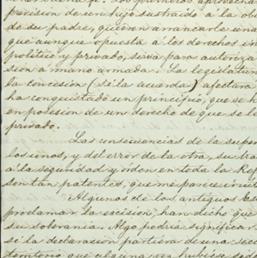 posicion de un hijo sustraido á la obe
de su padre, quieren arrancarle una
que aunque opuesta á los derechos in
político y privado, seria para autoriza
sion á mano armada. La legislatu
la concesión (si la acuerda) afectara
ha conquistado un principio, que se h
en posesion de un derecho de que se le
privado.
Las consecuencias de la supe
los unos, y del error de la otra, su tra
á la seguridad y orden en toda la Rep
son tan patentes, que me parece inutil
Algunos de los antiguos Es
proclamar la escision, han dicho que
su soberania. Algo podria significar
si la declaracion partiera de una sec
territorio que alguna vez hubiese sido